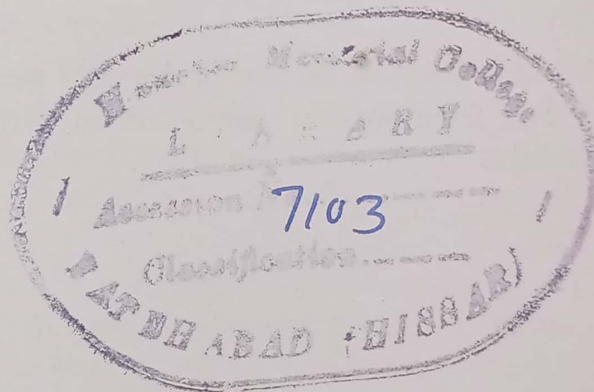 Memorial College
LIBRARY
Accession 7103
Classification........
FATEHABAD (HISSAR)